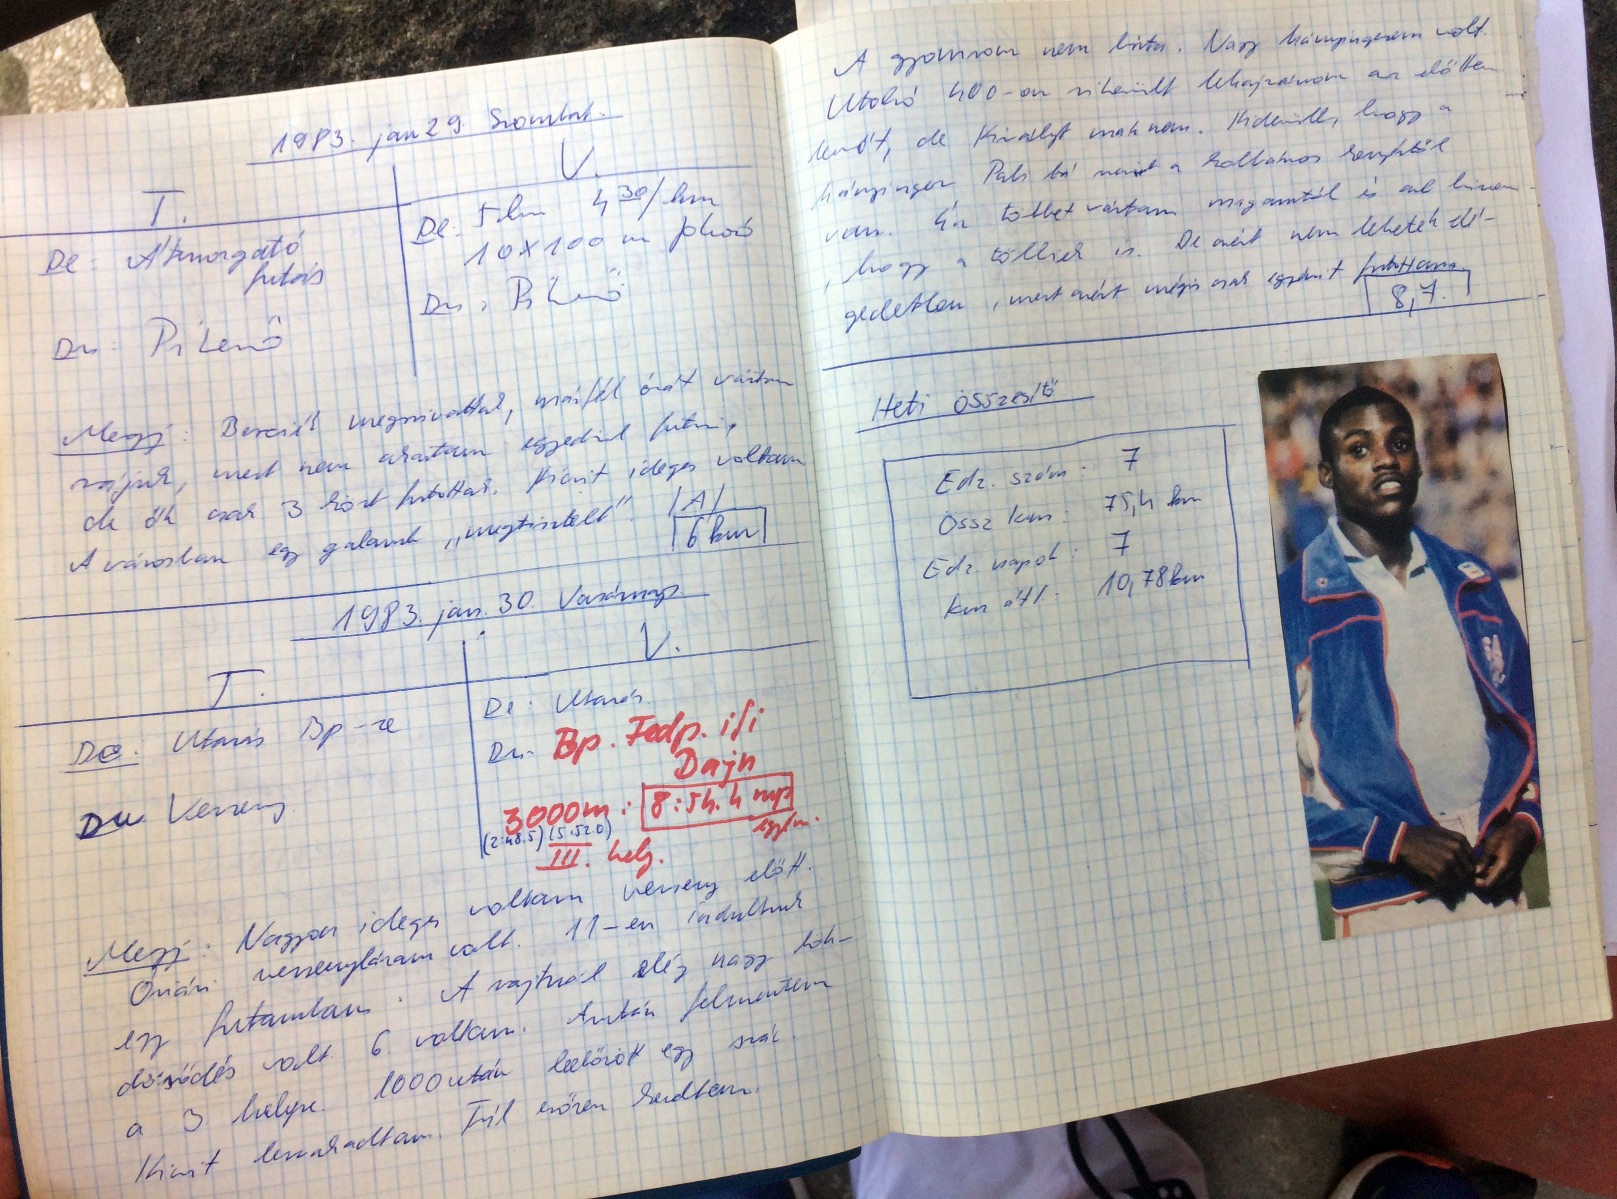 1983. jan 29. Szombat.
T.
V.
De: Átmozgató
futás
Du: Pihenő
De: 5 km 4 30/km
10x100 m fokozó
Du: Pihenő
Megj: megszivattak, másfél órát vártam
rájuk, mert nem akartam egyedül futni,
de ők csak 3 kört futottak. Kicsit ideges voltam
A városban egy galamb "megtisztelt". /A/
6 km
1983. jan. 30. Vasárnap
T.
V.
De: Utazás Bp-re
Du Verseny
De: Utazás
Du: Bp. Fedp. ifi
Bajn
3000m: 8:54.4 mp
egy.cs.
(2:48.5) (5:52.0)
III. hely.
Megj: Nagyon ideges voltam verseny előtt.
Óriási versenylázam volt. 11-en indultunk
egy futamban. A rajtnál elég nagy lök-
dösődés volt. 6 voltam. Aztán felmentem
a 3 helyre. 1000 után leelőzött egy srác.
Kicsit lemaradtam. Túl erősen kezdtem.
A gyomrom nem bírta. Nagy hányingerem volt.
Utolsó 400-on sikerült lehajráznom az előttem
levőt, de Királyt már nem. Kiderült, hogy a
hányinger Pali bá szerint a
van. Én többet vártam magamtól és azt hiszem
, hogy a többiek is. De azért nem lehetek elé-
gedetlen, mert azért mégis csak egyénit futottam.
8,7.
Heti összesítő
Edz. szám: 7
Össz km: 75,4 km
Edz. napok: 7
km átl.: 10,78 km